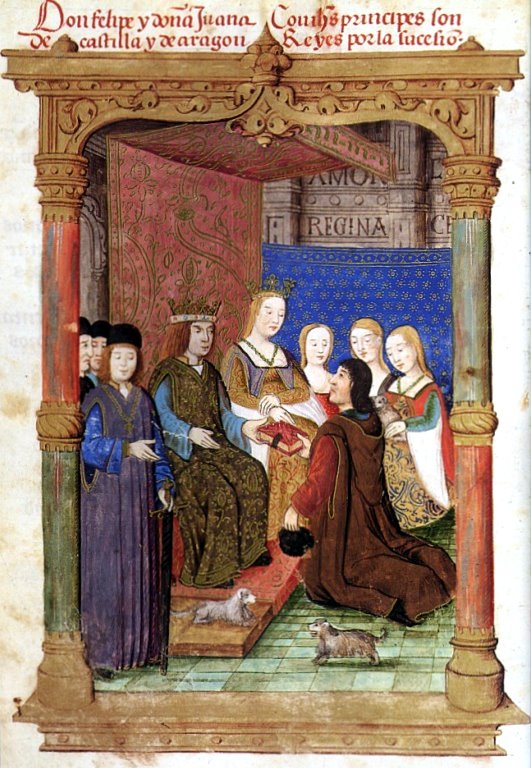 Don felipe y doña Juana
de castilla y de aragon
Comihs principes son
Reyes por la sucesio
AMOR
REGINA